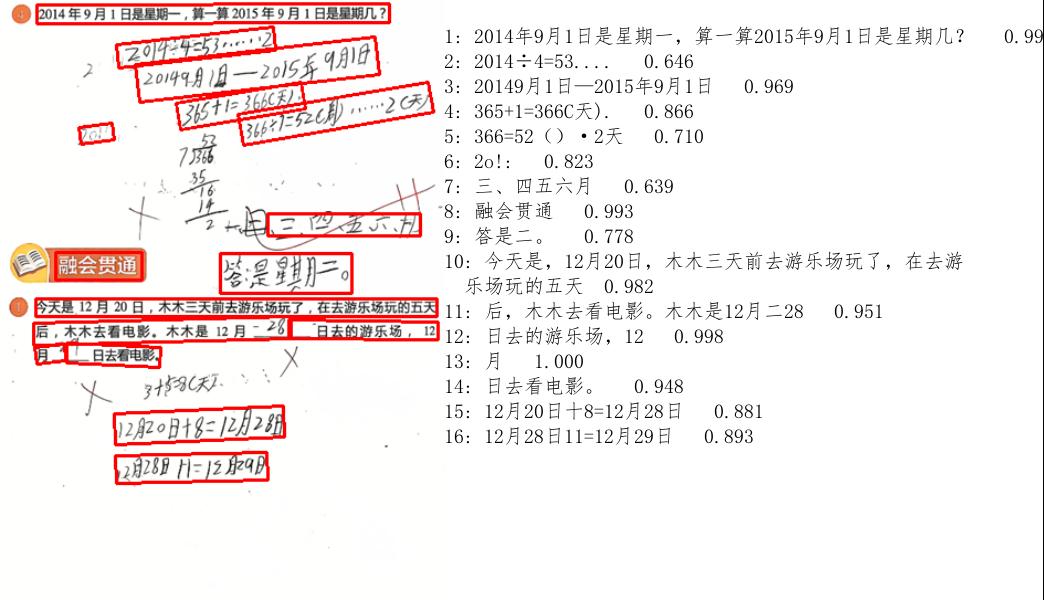 4 2014年9月1日是星期一，算一算2015年9月1日是星期几？
2014÷4=53……2
2
20149月1日—2015年9月1日
365+1=366(天).
366÷7=52(周)……2(天)
53
7 366
35
16
14
2
一 二 三 四 五 六 日
融会贯通
答:是星期二。
1 今天是 12 月 20 日，木木三天前去游乐场玩了，在去游乐场玩的五天
后，木木去看电影。木木是 12 月 28 日去的游乐场，12
月 29 日去看电影。
3+5=8(天).
12月20日+8=12月28日
12月28日 +1=12月29日
1: 2014年9月1日是星期一，算一算2015年9月1日是星期几？ 0.99
2: 2014÷4=53.... 0.646
3: 20149月1日—2015年9月1日 0.969
4: 365+1=366C天). 0.866
5: 366=52（）·2天 0.710
6: 2o!: 0.823
7: 三、四五六月 0.639
8: 融会贯通 0.993
9: 答是二。 0.778
10: 今天是，12月20日，木木三天前去游乐场玩了，在去游
乐场玩的五天 0.982
11: 后，木木去看电影。木木是12月二28 0.951
12: 日去的游乐场，12 0.998
13: 月 1.000
14: 日去看电影。 0.948
15: 12月20日十8=12月28日 0.881
16: 12月28日11=12月29日 0.893